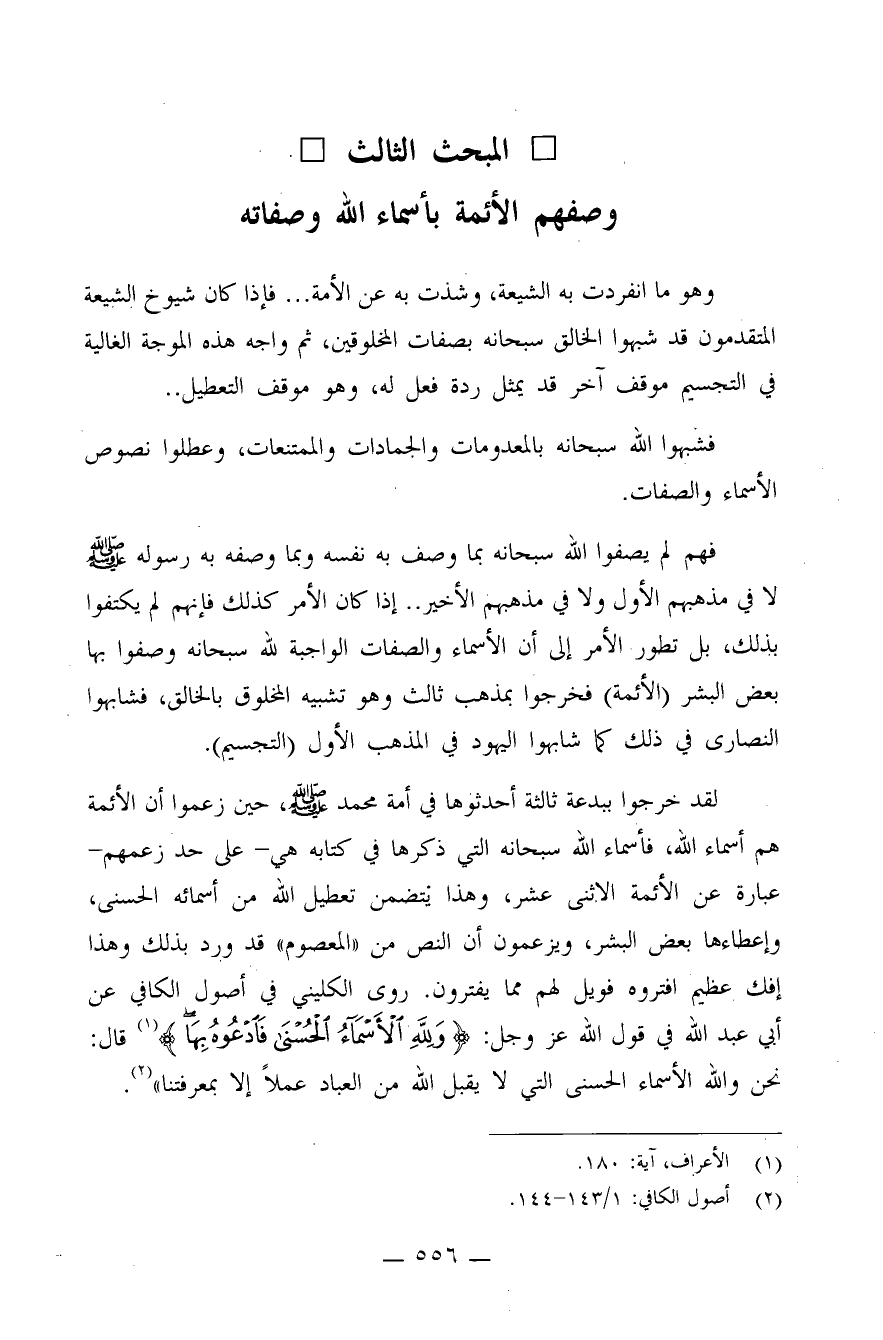 □ المبحث الثالث □
وصفهم الأئمة بأسماء الله وصفاته
وهو ما انفردت به الشيعة، وشذت به عن الأمة... فإذا كان شيوخ الشيعة
المتقدمون قد شبهوا الخالق سبحانه بصفات المخلوقين، ثم واجه هذه الموجة الغالية
في التجسيم موقف آخر قد يمثل ردة فعل له، وهو موقف التعطيل..
فشبهوا الله سبحانه بالمعدومات والجمادات والممتنعات، وعطلوا نصوص
الأسماء والصفات.
فهم لم يصفوا الله سبحانه بما وصف به نفسه وبما وصفه به رسوله ﷺ
لا في مذهبهم الأول ولا في مذهبهم الأخير.. إذا كان الأمر كذلك فإنهم لم يكتفوا
بذلك، بل تطور الأمر إلى أن الأسماء والصفات الواجبة لله سبحانه وصفوا بها
بعض البشر (الأئمة) فخرجوا بمذهب ثالث وهو تشبيه المخلوق بالخالق، فشابهوا
النصارى في ذلك كما شابهوا اليهود في المذهب الأول (التجسيم).
لقد خرجوا ببدعة ثالثة أحدثوها في أمة محمد ﷺ، حين زعموا أن الأئمة
هم أسماء الله، فأسماء الله سبحانه التي ذكرها في كتابه هي– على حد زعمهم–
عبارة عن الأئمة الاثنى عشر، وهذا يتضمن تعطيل الله من أسمائه الحسنى،
وإعطاءها بعض البشر، ويزعمون أن النص من «المعصوم» قد ورد بذلك وهذا
إفك عظيم افتروه فويل لهم مما يفترون. روى الكليني في أصول الكافي عن
أبي عبد الله في قول الله عز وجل: ﴿وَلِلَّهِ ٱلْأَسْمَآءُ ٱلْحُسْنَىٰ فَٱدْعُوهُ بِهَا ۖ﴾(١) قال:
نحن والله الأسماء الحسنى التي لا يقبل الله من العباد عملاً إلا بمعرفتنا»(٢).
(١) الأعراف، آية: ١٨٠.
(٢) أصول الكافي: ١٤٣/١–١٤٤.
— ٥٥٦ —